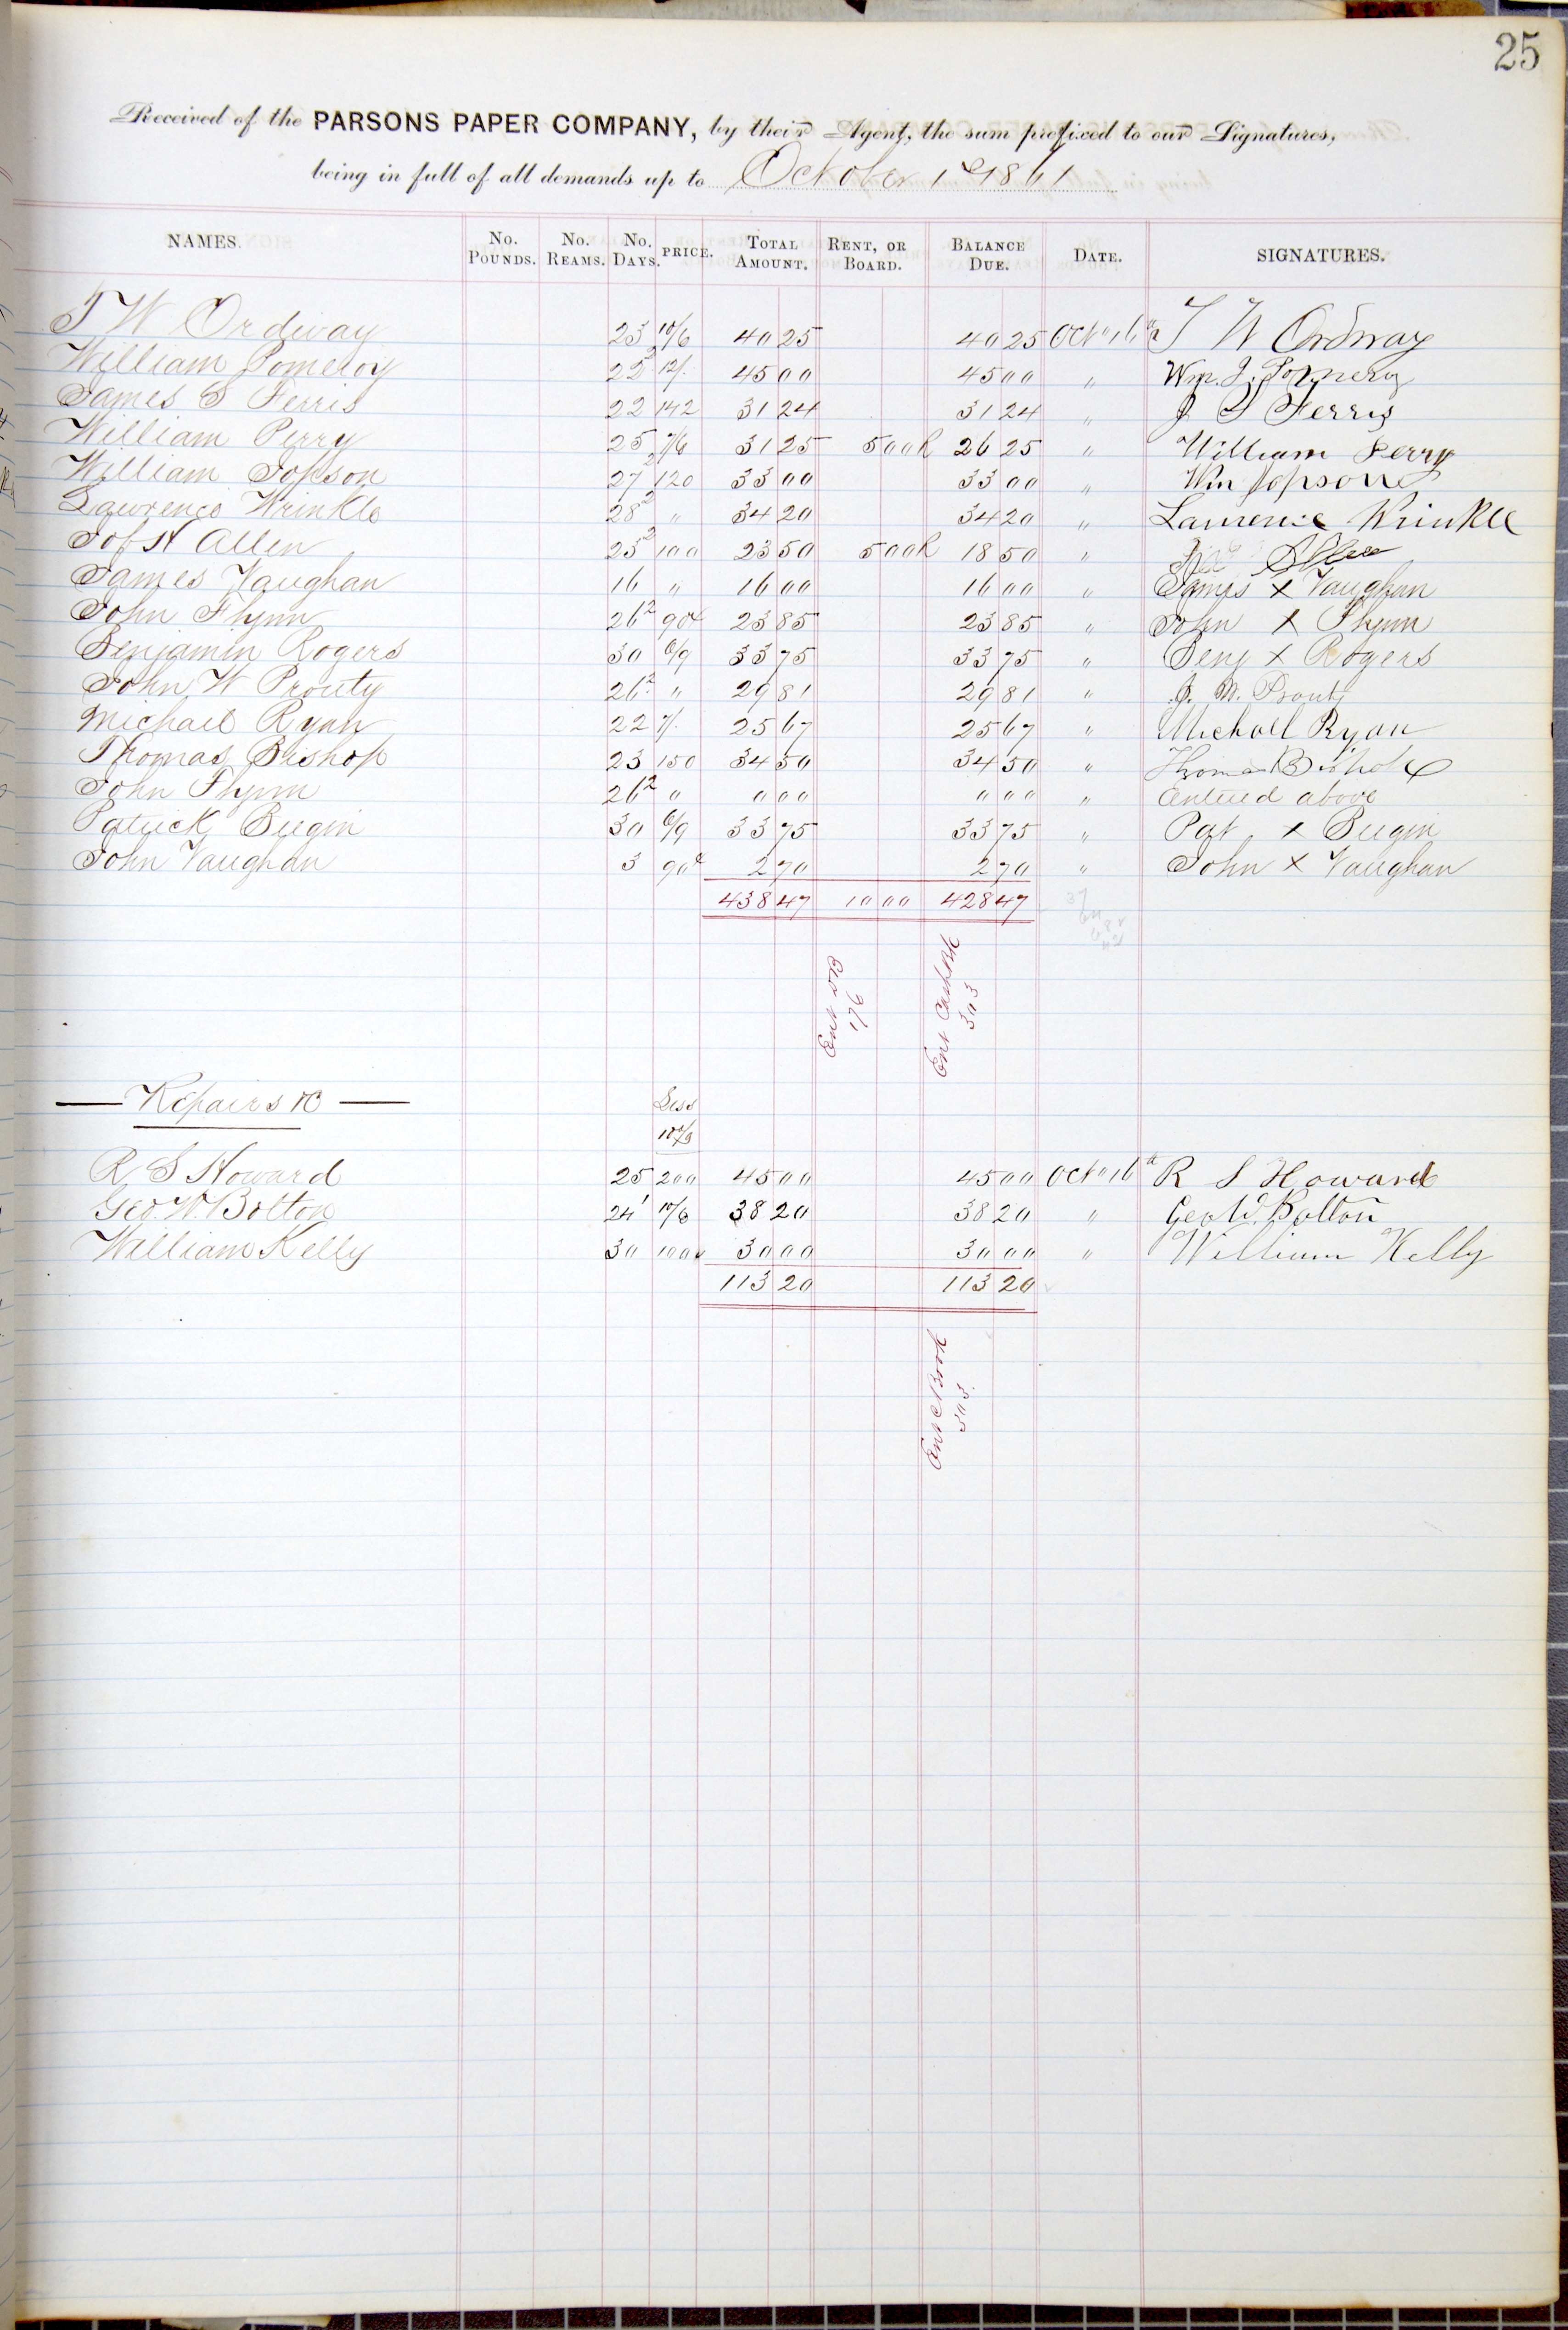 25
Received of the PARSONS PAPER COMPANY, by their Agent, the sum prefixed to our Signatures,
being in full of all demands up to October 1st 1861
NAMES. No. POUNDS. No. REAMS. No. DAYS. PRICE. TOTAL AMOUNT. RENT, OR BOARD. BALANCE DUE. DATE. SIGNATURES.
T W Ordway 23 10/6 40 25 40 25 Oct" 16th T W Ordway
William Pomeroy 22² 12/. 45 00 45 00 " Wm. J. Pomeroy
James S Ferris 22 142 31 24 31 24 " J S Ferris
William Perry 25 7/6 31 25 5 00 R 26 25 " William Perry
William Jopson 27² 120 33 00 33 00 " Wm Jopson
Lawrence Wrinkle 28² " 34 20 34 20 " Lawrence Wrinkle
Jos H Allen 23² 100 23 50 5 00 R 18 50 " Allen
James Vaughan 16 " 16 00 16 00 " James X Vaughan
John Flynn 26² 90¢ 23 85 23 85 " John X Flynn
Benjamin Rogers 30 6/9 33 75 33 75 " Benj X Rogers
John W Prouty 26² " 29 81 29 81 " J. W. Prouty
Michael Ryan 22 7/. 25 67 25 67 " Michall Ryan
Thomas Bishop 23 150 34 50 34 50 " Thomas Bishop
John Flynn 26² " " 00 " 00 " Entered above
Patrick Bugin 30 6/9 33 75 33 75 " Pat X Bugin
John Vaughan 3 90¢ 2 70 2 70 " John X Vaughan
438 47 10 00 428 47
Ent DB 176
Ent CashBk 303
Repairs &c Less
10%
R S Howard 25 200 45 00 45 00 Oct" 16th R S Howard
Geo. W. Bolton 24¹ 10/6 38 20 38 20 " Geo W. Bolton
William Kelly 30 100 30 00 30 00 " William Kelly
113 20 113 20
Ent C Book 303